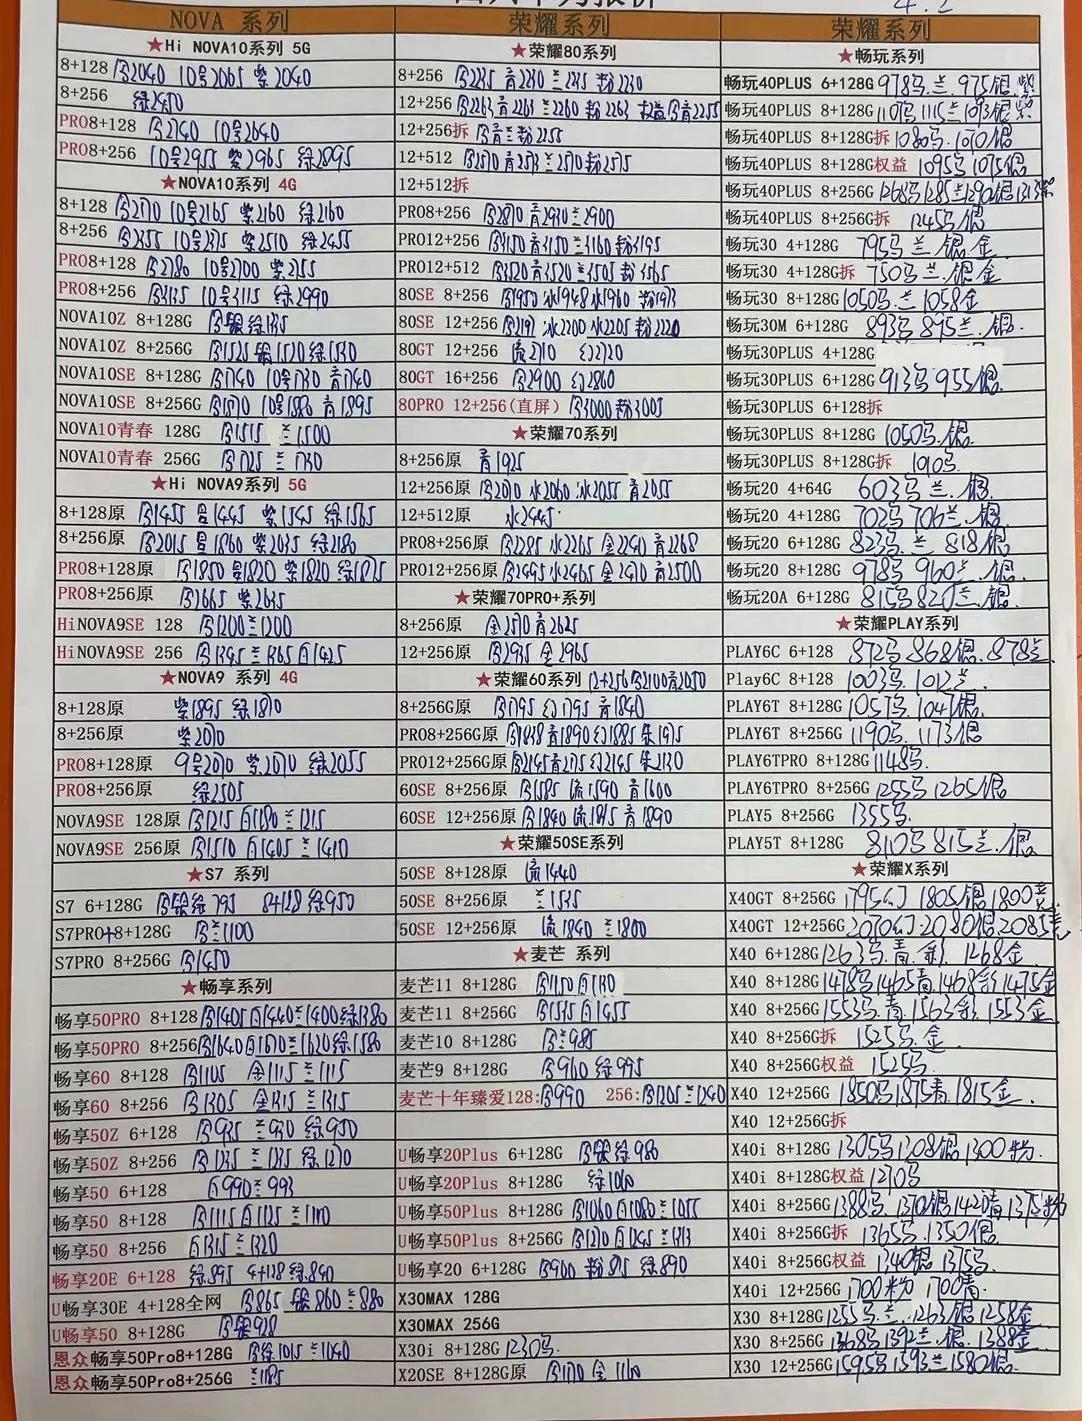 4.2
NOVA 系列
★Hi NOVA10系列 5G
8+128 2040 10号2065 紫2040
8+256 绿2450
PRO8+128 2740 10号2640
PRO8+256 10号2955 紫2965 绿2895
★NOVA10系列 4G
8+128 2170 10号2165 紫2160 绿2160
8+256 2355 10号2375 紫2510 绿2455
PRO8+128 2780 10号2700 紫2755
PRO8+256 3135 10号3115 绿2990
NOVA10Z 8+128G 银绿1335
NOVA10Z 8+256G 1525 银1520绿1530
NOVA10SE 8+128G 1740 10号1730 青1740
NOVA10SE 8+256G 10号1880 青1895
NOVA10青春 128G 1515 兰1500
NOVA10青春 256G 1725 兰1730
★Hi NOVA9系列 5G
8+128原 1455 号1445 紫1545 绿1565
8+256原 2015 号1860 紫2035 绿2180
PRO8+128原 1850 号1820 紫1820 绿1875
PRO8+256原 2665 紫2635
HiNOVA9SE 128 1200兰1200
HiNOVA9SE 256 1345兰1365白1425
★NOVA9 系列 4G
8+128原 紫1895 绿1870
8+256原 紫2070
PRO8+128原 9号2070 紫2070 绿2055
PRO8+256原 绿2505
NOVA9SE 128原 1215 白1180兰1215
NOVA9SE 256原 1510 白1405兰1410
★S7 系列
S7 6+128G 银绿795 8+128绿950
S7PRO+8+128G 兰1100
S7PRO 8+256G 1450
★畅享系列
畅享50PRO 8+128 1405白1440兰1400绿1380
畅享50PRO 8+256 1640白1670兰1620绿1580
畅享60 8+128 1105 金1115兰1115
畅享60 8+256 1305 金1315兰1315
畅享50Z 6+128 935 兰930 绿950
畅享50Z 8+256 1235 兰1235 绿1270
畅享50 6+128 白990兰993
畅享50 8+128 1115白1125兰1110
畅享50 8+256 白1315兰1320
畅享20E 6+128 绿895 4+128绿840
U畅享30E 4+128全网 865 银860兰880
U畅享50 8+128G 银928
恩众畅享50Pro8+128G 绿1015兰1040
恩众畅享50Pro8+256G 兰1185
荣耀系列
★荣耀80系列
8+256 2235 青2230兰2235 粉2230
12+256 2263青2263兰2260粉2263 权益青2255
12+256拆 青兰粉2255
12+512 2570青2573兰2570粉2575
12+512拆
PRO8+256 2870 青2930兰2900
PRO12+256 3150青3150兰3160粉3195
PRO12+512 3520青3520兰3505粉3565
80SE 8+256 1950 冰1948水1960 粉1973
80SE 12+256 2192 冰2200水2205粉2220
80GT 12+256 流2710 幻2720
80GT 16+256 2900幻2860
80PRO 12+256(直屏) 3000粉3005
★荣耀70系列
8+256原 青1925
12+256原 2070 水2060 冰2055 青2055
12+512原 水2445
PRO8+256原 2285 水2265 金2240青2268
PRO12+256原 2495水2465金2470青2500
★荣耀70PRO+系列
8+256原 金2570青2625
12+256原 2935 金2965
★荣耀60系列 12+256 2100青2050
8+256G原 1795 幻1795 青1840
PRO8+256G原 1838青1890幻1885朱1975
PRO12+256G原 2145青2175幻2145朱2130
60SE 8+256原 1585 流1590 青1600
60SE 12+256原 1840 流1845青1890
★荣耀50SE系列
50SE 8+128原 流1440
50SE 8+256原 兰1535
50SE 12+256原 流1840兰1800
★麦芒 系列
麦芒11 8+128G 1150白1130
麦芒11 8+256G 1535白1455
麦芒10 8+128G 兰985
麦芒9 8+128G 960 绿995
麦芒十年臻爱128: 990 256: 1205兰1240
U畅享20Plus 6+128G 银绿980
U畅享20Plus 8+128G 绿1060
U畅享50Plus 8+128G 1060白1080兰1055
U畅享50Plus 8+256G 1270白1245兰1313
U畅享20 6+128G 900 粉875 绿890
X30MAX 128G
X30MAX 256G
X30i 8+128G 1230
X20SE 8+128G原 1170 金1160
荣耀系列
★畅玩系列
畅玩40PLUS 6+128G 978.兰.975银.紫
畅玩40PLUS 8+128G 1107 1115兰1093银紫
畅玩40PLUS 8+128G拆 1080.1070银
畅玩40PLUS 8+128G权益 1095 1075银
畅玩40PLUS 8+256G 1268 1285兰1290银1313紫
畅玩40PLUS 8+256G拆 1245银
畅玩30 4+128G 795兰银金
畅玩30 4+128G拆 750兰.银金
畅玩30 8+128G 1050.兰1058金
畅玩30M 6+128G 893 895兰.银
畅玩30PLUS 4+128G
畅玩30PLUS 6+128G 913 955银
畅玩30PLUS 6+128拆
畅玩30PLUS 8+128G 1050.银
畅玩30PLUS 8+128G拆 1090
畅玩20 4+64G 603兰.银
畅玩20 4+128G 702 706兰.银
畅玩20 6+128G 823.兰 818银
畅玩20 8+128G 978 960兰.银
畅玩20A 6+128G 815 820兰.银
★荣耀PLAY系列
PLAY6C 6+128 872 868银.878兰
Play6C 8+128 1003.1012兰
PLAY6T 8+128G 1057.1047银
PLAY6T 8+256G 1190.1173银
PLAY6TPRO 8+128G 1148
PLAY6TPRO 8+256G 1255 1265银
PLAY5 8+256G 1355
PLAY5T 8+128G 810 815兰.银
★荣耀X系列
X40GT 8+256G 1795幻 1805银1800
X40GT 12+256G 2070幻2080银2085
X40 6+128G 1263.青.彩.1268金
X40 8+128G 1478 1465青.1468彩1475金
X40 8+256G 1553.青.1563彩.1553金
X40 8+256G拆 1525.金
X40 8+256G权益 1525
X40 12+256G 1850 1875青.1815金
X40 12+256G拆
X40i 8+128G 1305 1308银1300粉
X40i 8+128G权益 1270
X40i 8+256G 1388.1370银1420晴1375粉
X40i 8+256G拆 1365.1350银
X40i 8+256G权益 1340银1375
X40i 12+256G 1700粉1700晴
X30 8+128G 1255兰.1263银1258金
X30 8+256G 1368 1392兰.银.1388金
X30 12+256G 1595 1593兰1580银